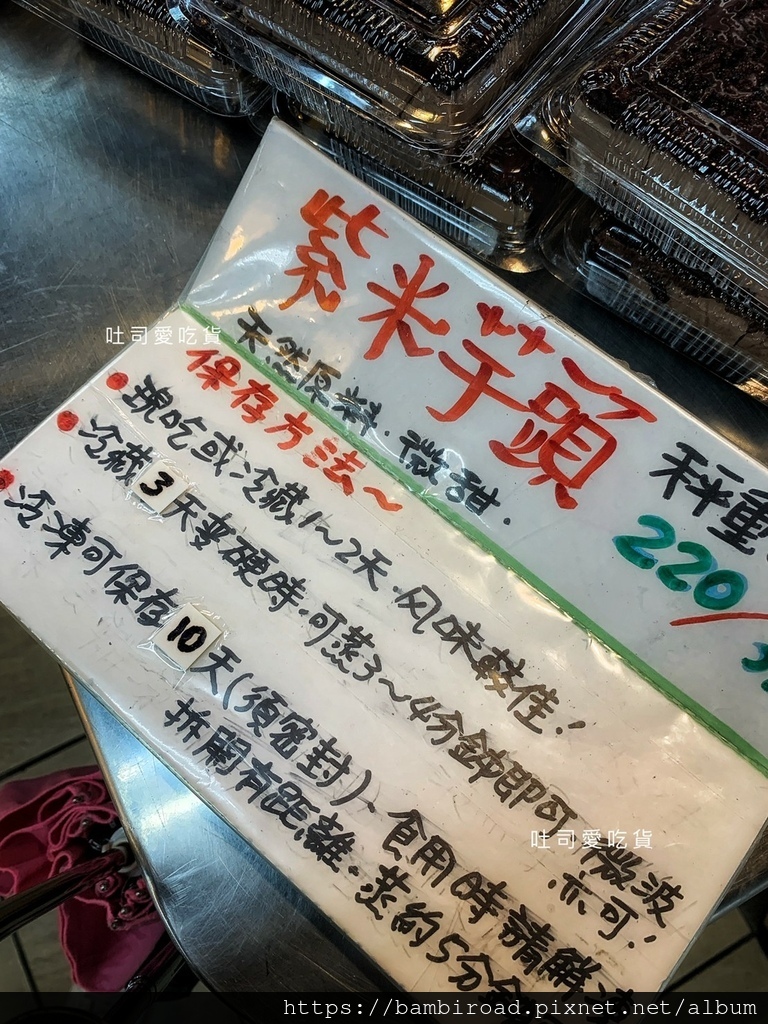 紫米芋頭
天然原料.微甜.
秤重
220/
保存方法~
現吃或冷藏1~2天.风味較佳!
冷藏3天变硬時.可蒸3~4分鈡即可,微波
亦可!
冷凍可保存10天(須密封).食用時請鮮
拆開有距離.蒸約5分
吐司愛吃貨
吐司愛吃貨
https://bambiroad.pixnet.net/album